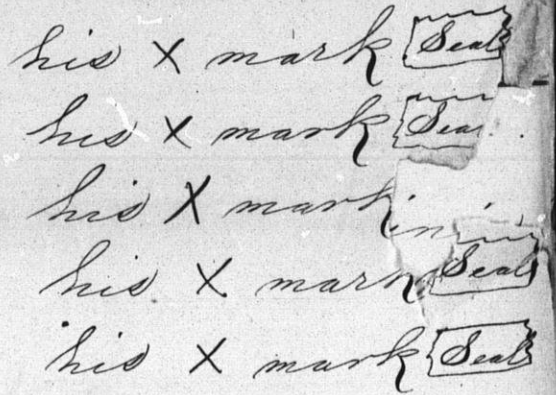 his X mark Seal
his X mark Seal
his X mark
his X mark Seal
his X mark Seal